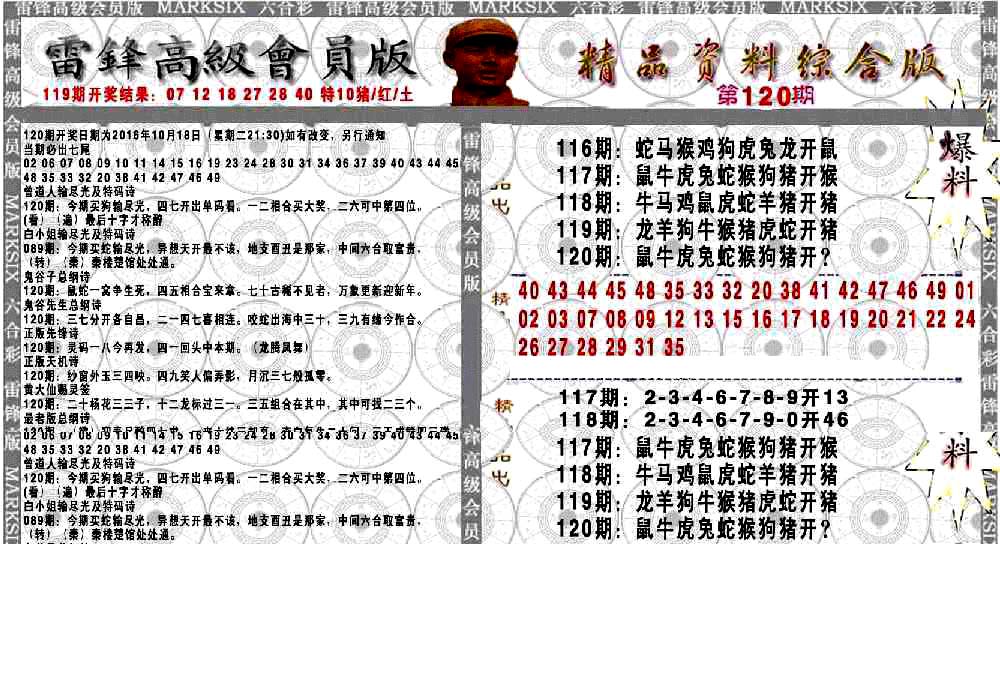 雷锋高级会员版 MARKSIX 六合彩 雷锋高级会员版 MARKSIX 六合彩 雷锋高级会员版 MARKSIX 六合彩 雷锋
雷鋒高級會員版
精品资料综合版
119期开奖结果: 07 12 18 27 28 40 特10猪/红/土
第120期
120期开奖日期为2016年10月18日 (星期二21:30)如有改变,另行通知
当期必出七尾
02 06 07 08 09 10 11 14 15 16 19 23 24 28 30 31 34 36 37 39 40 43 44 45
48 35 33 32 20 38 41 42 47 46 49
曾道人输尽光及特码诗
120期: 今期买狗输尽光, 四七开出单码看。一二相合买大奖, 二六可中第四位。
(看) (遍) 最后十字才称醉
白小姐输尽光及特码诗
089期: 今期买蛇输尽光, 异想天开最不该, 地支酉丑是那家, 中间六合取富贵,
(转) (秦) 秦楼楚馆处处通。
鬼谷子总纲诗
120期: 鼠蛇一窝争生死, 四五相合宝来拿。七十古稀不见老, 万象更新迎新年。
鬼谷先生总纲诗
120期: 三七分开各自昌, 二一四七喜相连。咬蛇出海中三十, 三九有缘今作合。
正版先锋诗
120期: 灵码一八今再发, 四一回头中本期。(龙腾凤舞)
正版天机诗
120期: 纱窗外玉三四映。四九笑人偏弄影, 月沉三七般孤零。
黄大仙赐灵签
120期: 二十杨花三三子, 十二龙标过三一。三五组合在其中, 其中可拔二三个。
最老版总纲诗
02 06 07 08 09 10 11 14 15 16 19 23 24 28 30 31 34 36 37 39 40 43 44 45
48 35 33 32 20 38 41 42 47 46 49
曾道人输尽光及特码诗
120期: 今期买狗输尽光, 四七开出单码看。一二相合买大奖, 二六可中第四位。
(看) (遍) 最后十字才称醉
白小姐输尽光及特码诗
089期: 今期买蛇输尽光, 异想天开最不该, 地支酉丑是那家, 中间六合取富贵,
(转) (秦) 秦楼楚馆处处通。
116期: 蛇马猴鸡狗虎兔龙开鼠
117期: 鼠牛虎兔蛇猴狗猪开猴
118期: 牛马鸡鼠虎蛇羊猪开猪
119期: 龙羊狗牛猴猪虎蛇开猪
120期: 鼠牛虎兔蛇猴狗猪开?
爆料
精
40 43 44 45 48 35 33 32 20 38 41 42 47 46 49 01
02 03 07 08 09 12 13 15 16 17 18 19 20 21 22 24
26 27 28 29 31 35
精
117期: 2-3-4-6-7-8-9开13
118期: 2-3-4-6-7-9-0开46
117期: 鼠牛虎兔蛇猴狗猪开猴
118期: 牛马鸡鼠虎蛇羊猪开猪
119期: 龙羊狗牛猴猪虎蛇开猪
120期: 鼠牛虎兔蛇猴狗猪开?
料